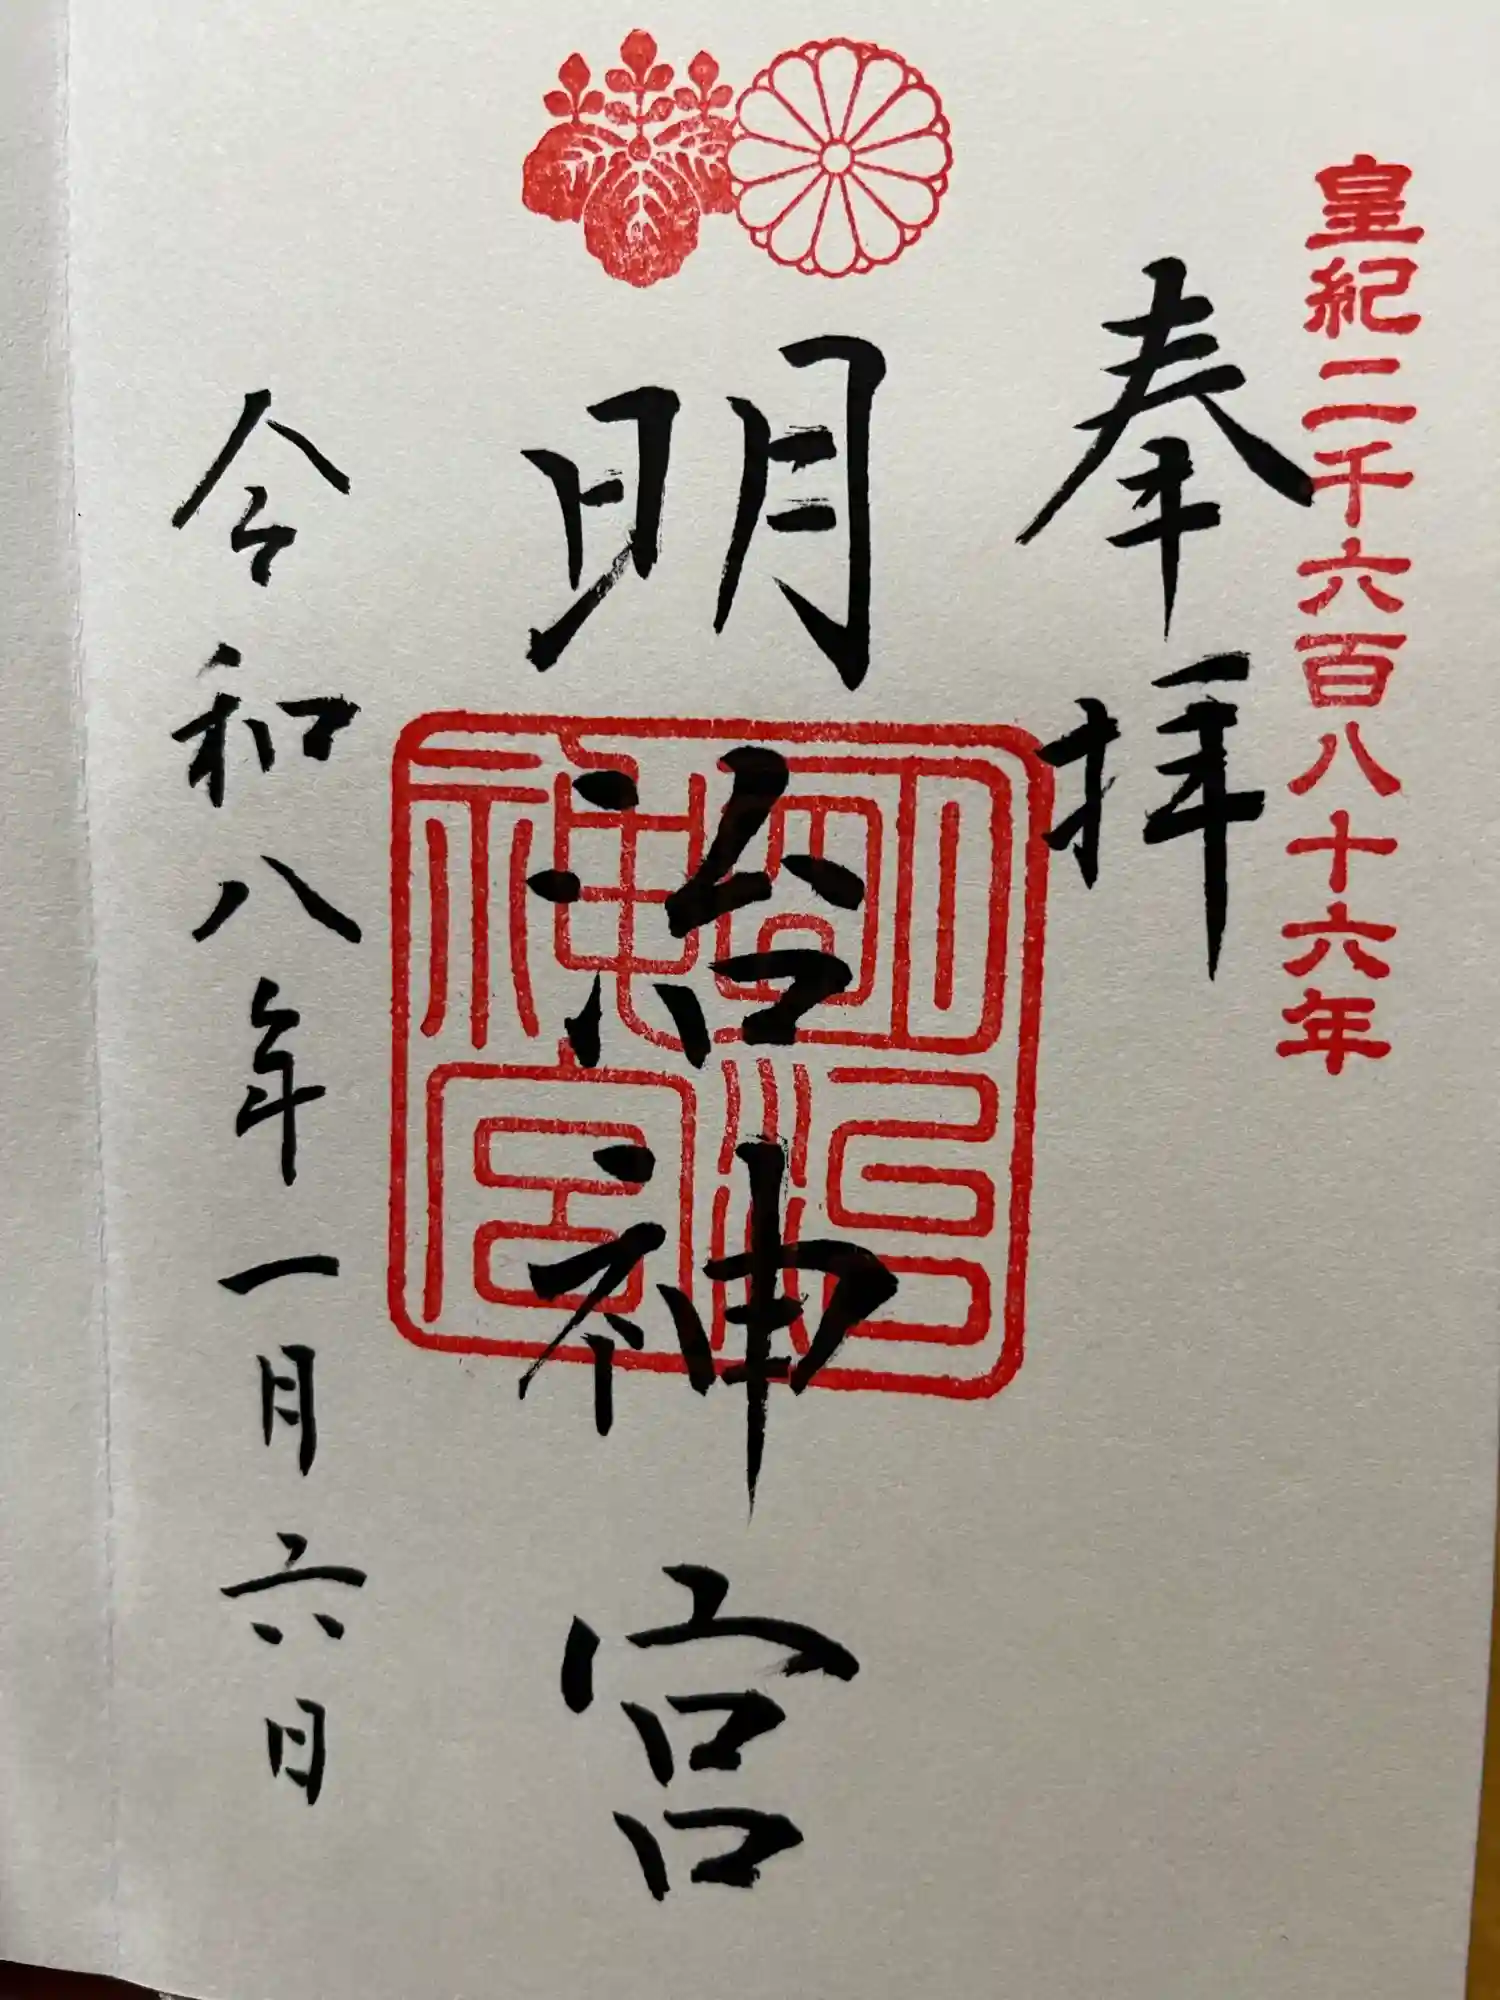 皇紀二千六百八十六年
奉拝
明治神宮
明治
神宮
令和八年一月六日